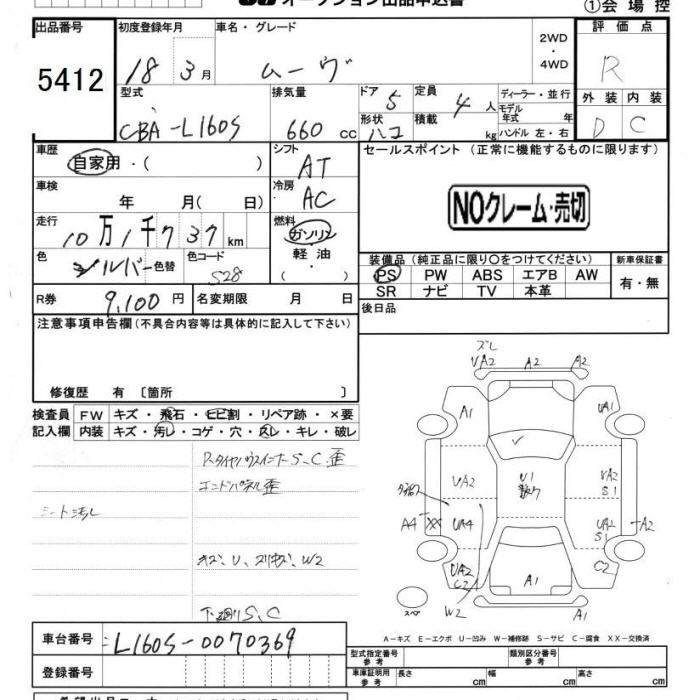 オークション出品申込書
①会場控
出品番号
5412
初度登録年月
18 3月
車名・グレード
ムーヴ
2WD・4WD
評価点
R
型式
CBA-L160S
排気量
660 cc
ドア 5
形状 ハコ
定員 4 人
積載 kg
ディーラー・並行
モデル年式 年
ハンドル 左・右
外装 内装
D C
車歴
自家用・( )
シフト
AT
セールスポイント (正常に機能するものに限ります)
NOクレーム・売切
車検
年 月( 日)
冷房
AC
走行
10万1千737 km
燃料
ガソリン
軽油・
( )
色
シルバー 色替
色コード
S28
装備品 (純正品に限り○をつけてください)
新車保証書
PS PW ABS エアB AW
SR ナビ TV 本革
有・無
R券 9,100円
名変期限 月 日
後日品
注意事項申告欄 (不具合内容等は具体的に記入して下さい)
修復歴 有 〔箇所 〕
検査員記入欄
FW キズ・飛石・ヒビ割・リペア跡・×要
内装 キズ・汚レ・コゲ・穴・スレ・キレ・破レ
RタイヤハウスインナーS、C、歪
エンドパネル歪
シート汚レ
キズ、U、スリキズ、W2
下廻りS、C
ズレ
UA2 A2 A2
A1 UA1
UA2 U1 UA2
S1
A4 XX UA4 UA2 A2
S1
UA2 C2
C2 A1
W2 A1
スペア
A-キズ E-エクボ U-凹み W-補修跡 S-サビ C-腐食 XX-交換済
車台番号 L160S-0070369
登録番号
型式指定番号 参考
類別区分番号 参考
車庫証明用 参考 長さ cm 幅 cm 高さ cm